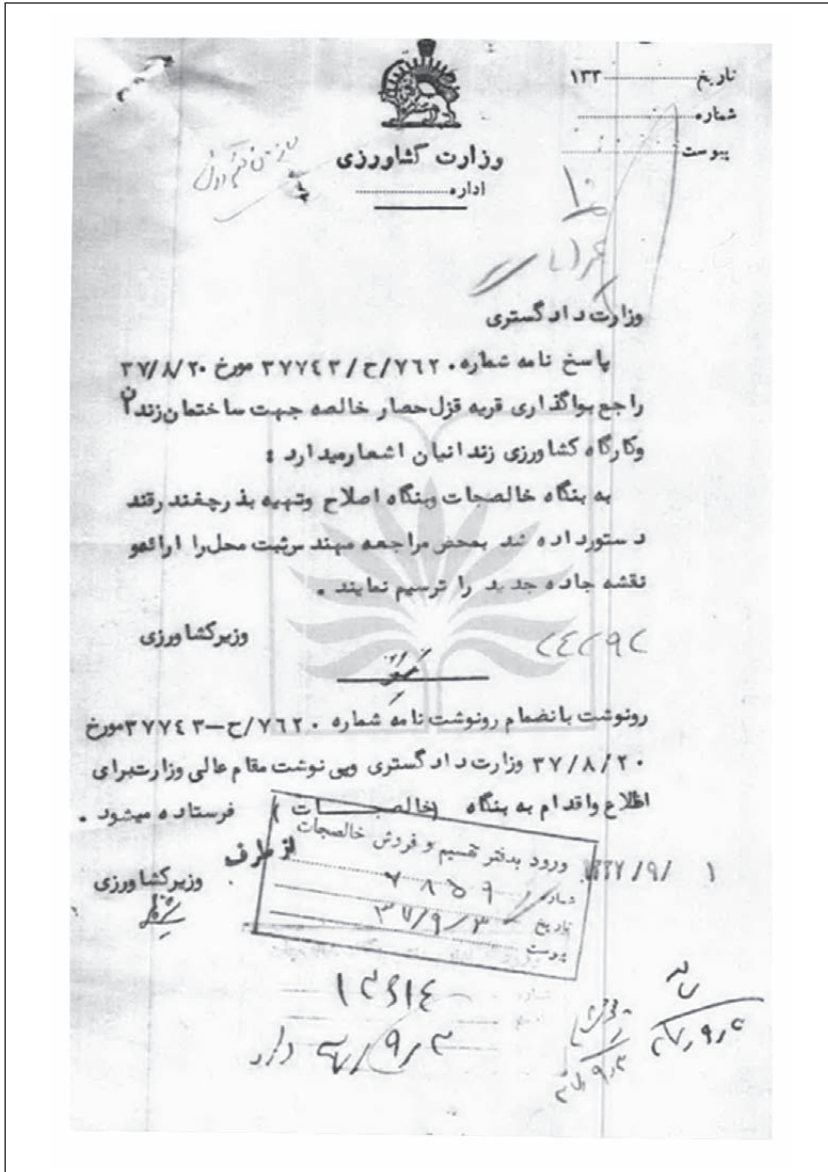 تاریخ ............ ۱۳۳
شماره ............
پیوست ............
وزارت کشاورزی
اداره ............
وزارت دادگستری
پاسخ نامه شماره ۷۶۲۰/ح/۳۷۷۴۳ مورخ ۳۷/۸/۲۰
راجع بواگذاری قریه قزل حصار خالصه جهت ساختمان زندان
وکارگاه کشاورزی زندانیان اشعار میدارد :
به بنگاه خالصجات وبنگاه اصلاح وتهیه بذر چغندر قند
دستور داده شد بمحض مراجعه مهندس ثبت محل را ارائه و
نقشه جاده جدید را ترسیم نمایند .
وزیر کشاورزی
رونوشت بانضمام رونوشت نامه شماره ۷۶۲۰/ح–۳۷۷۴۳ مورخ
۳۷/۸/۲۰ وزارت دادگستری وپی نوشت مقام عالی وزارت برای
اطلاع واقدام به بنگاه (خالصجات) فرستاده میشود .
از طرف وزیر کشاورزی
ورود بدفتر تقسیم و فروش خالصجات
شماره ۷۸۵۹
تاریخ ۳۷/۹/۳
پیوست